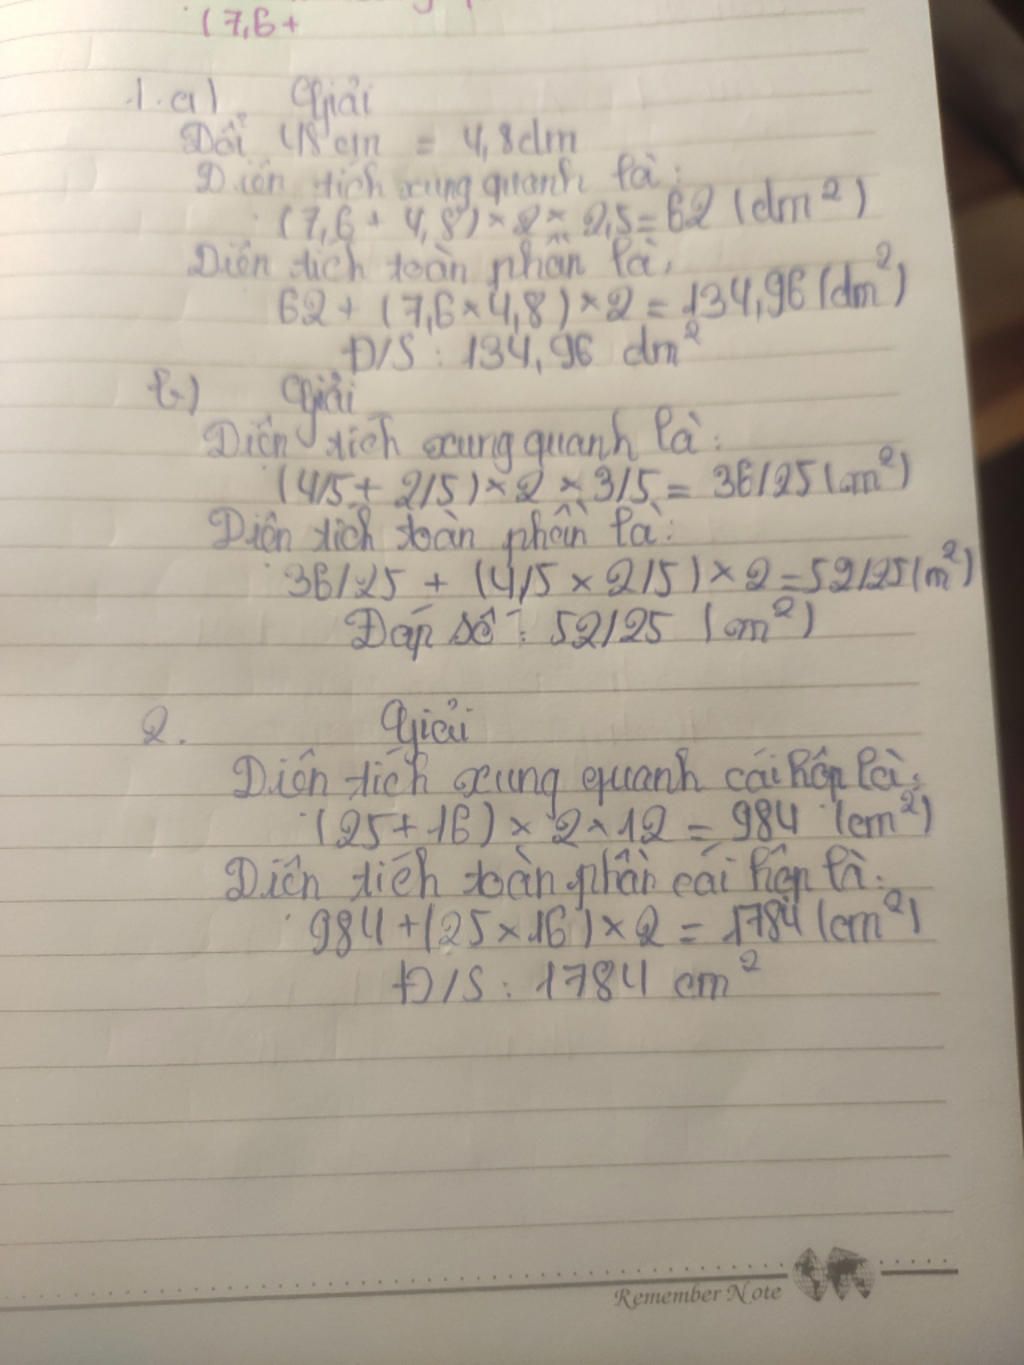 (7,6 +
1. a) Giải
Đổi 48 cm = 4,8dm
Diện tích xung quanh là:
(7,6 + 4,8) × 2 × 2,5 = 62 (dm²)
Diện tích toàn phần là:
62 + (7,6 × 4,8) × 2 = 134,96 (dm²)
Đ/S : 134,96 dm²
b) Giải
Diện tích xung quanh là:
(4/5 + 2/5) × 2 × 3/5 = 36/25 (m²)
Diện tích toàn phần là:
36/25 + (4/5 × 2/5) × 2 = 52/25 (m²)
Đáp số : 52/25 (m²)
2. Giải
Diện tích xung quanh cái hộp là:
(25 + 16) × 2 × 12 = 984 (cm²)
Diện tích toàn phần cái hộp là:
984 + (25 × 16) × 2 = 1784 (cm²)
Đ/S : 1784 cm²
Remember Note